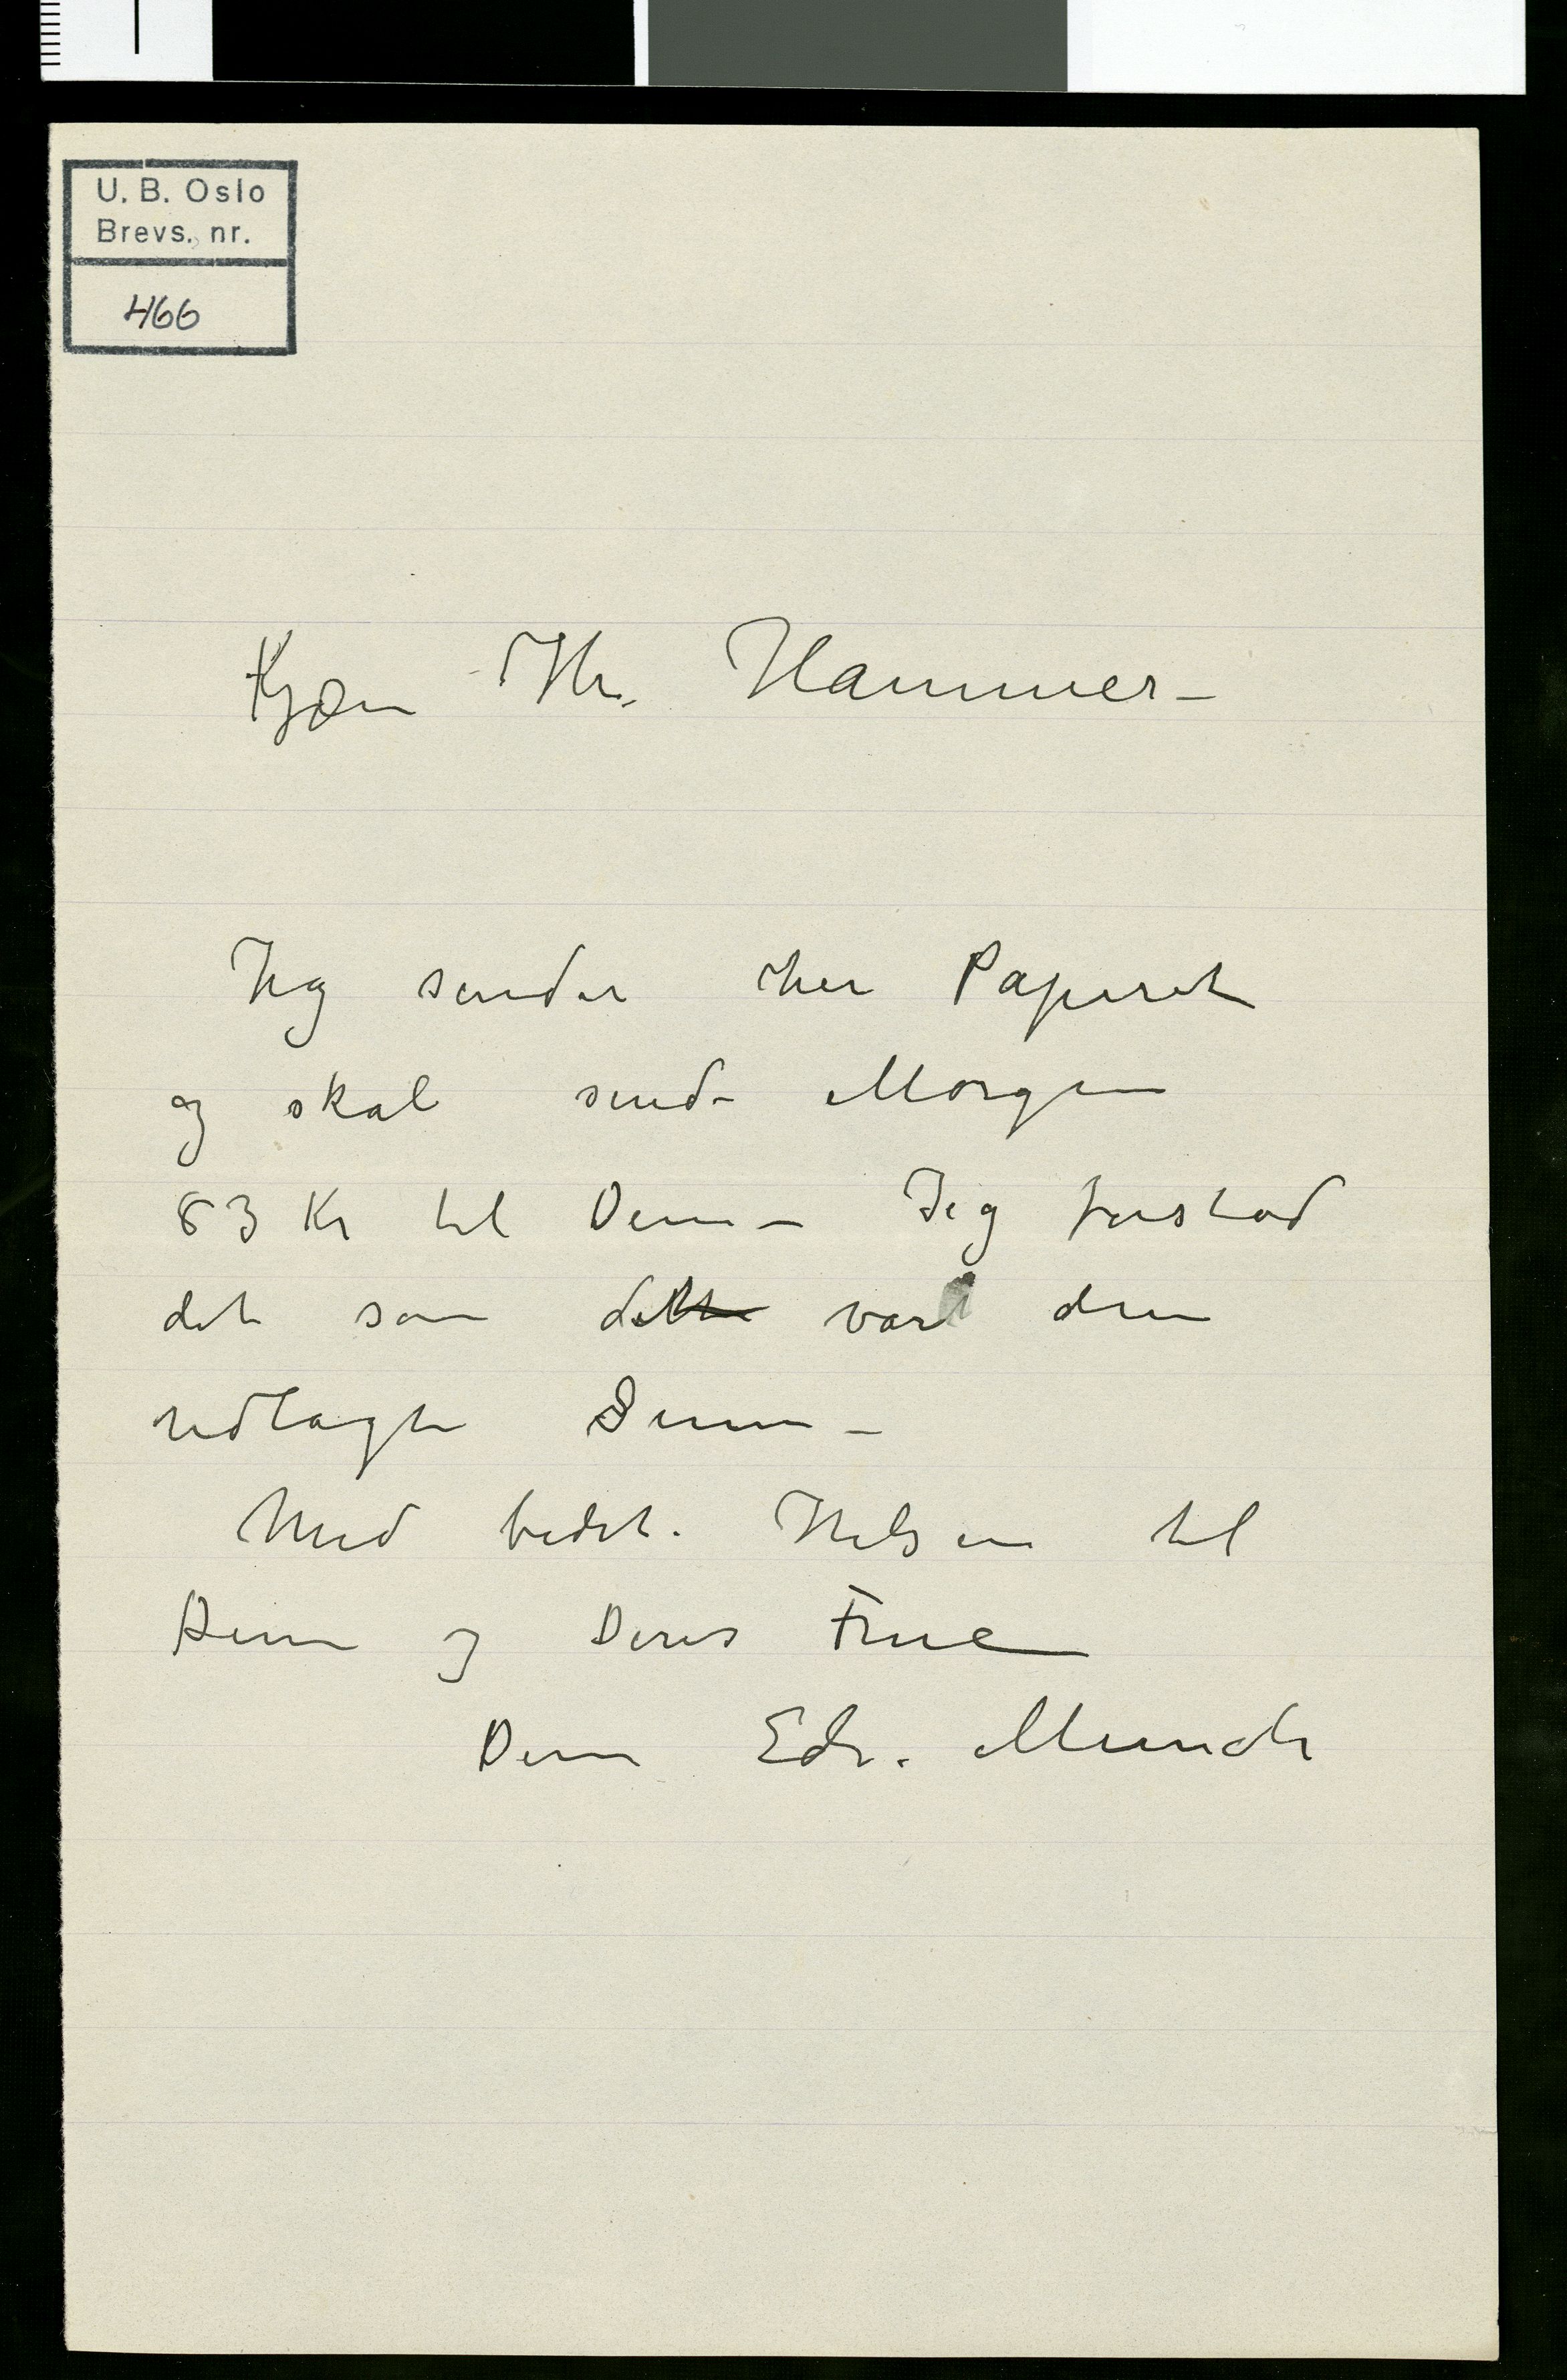 U. B. Oslo
Brevs. nr.
466
Kjære Hr. Hammer –
Jeg sender her Papiret
og skal sende Morgen
63 Kr til Dem – Jeg forstod
det som dette var den
udlagte Summ –
Med bedst. Hilsen til
Dem og Deres Frue
Deres Edv. Munch